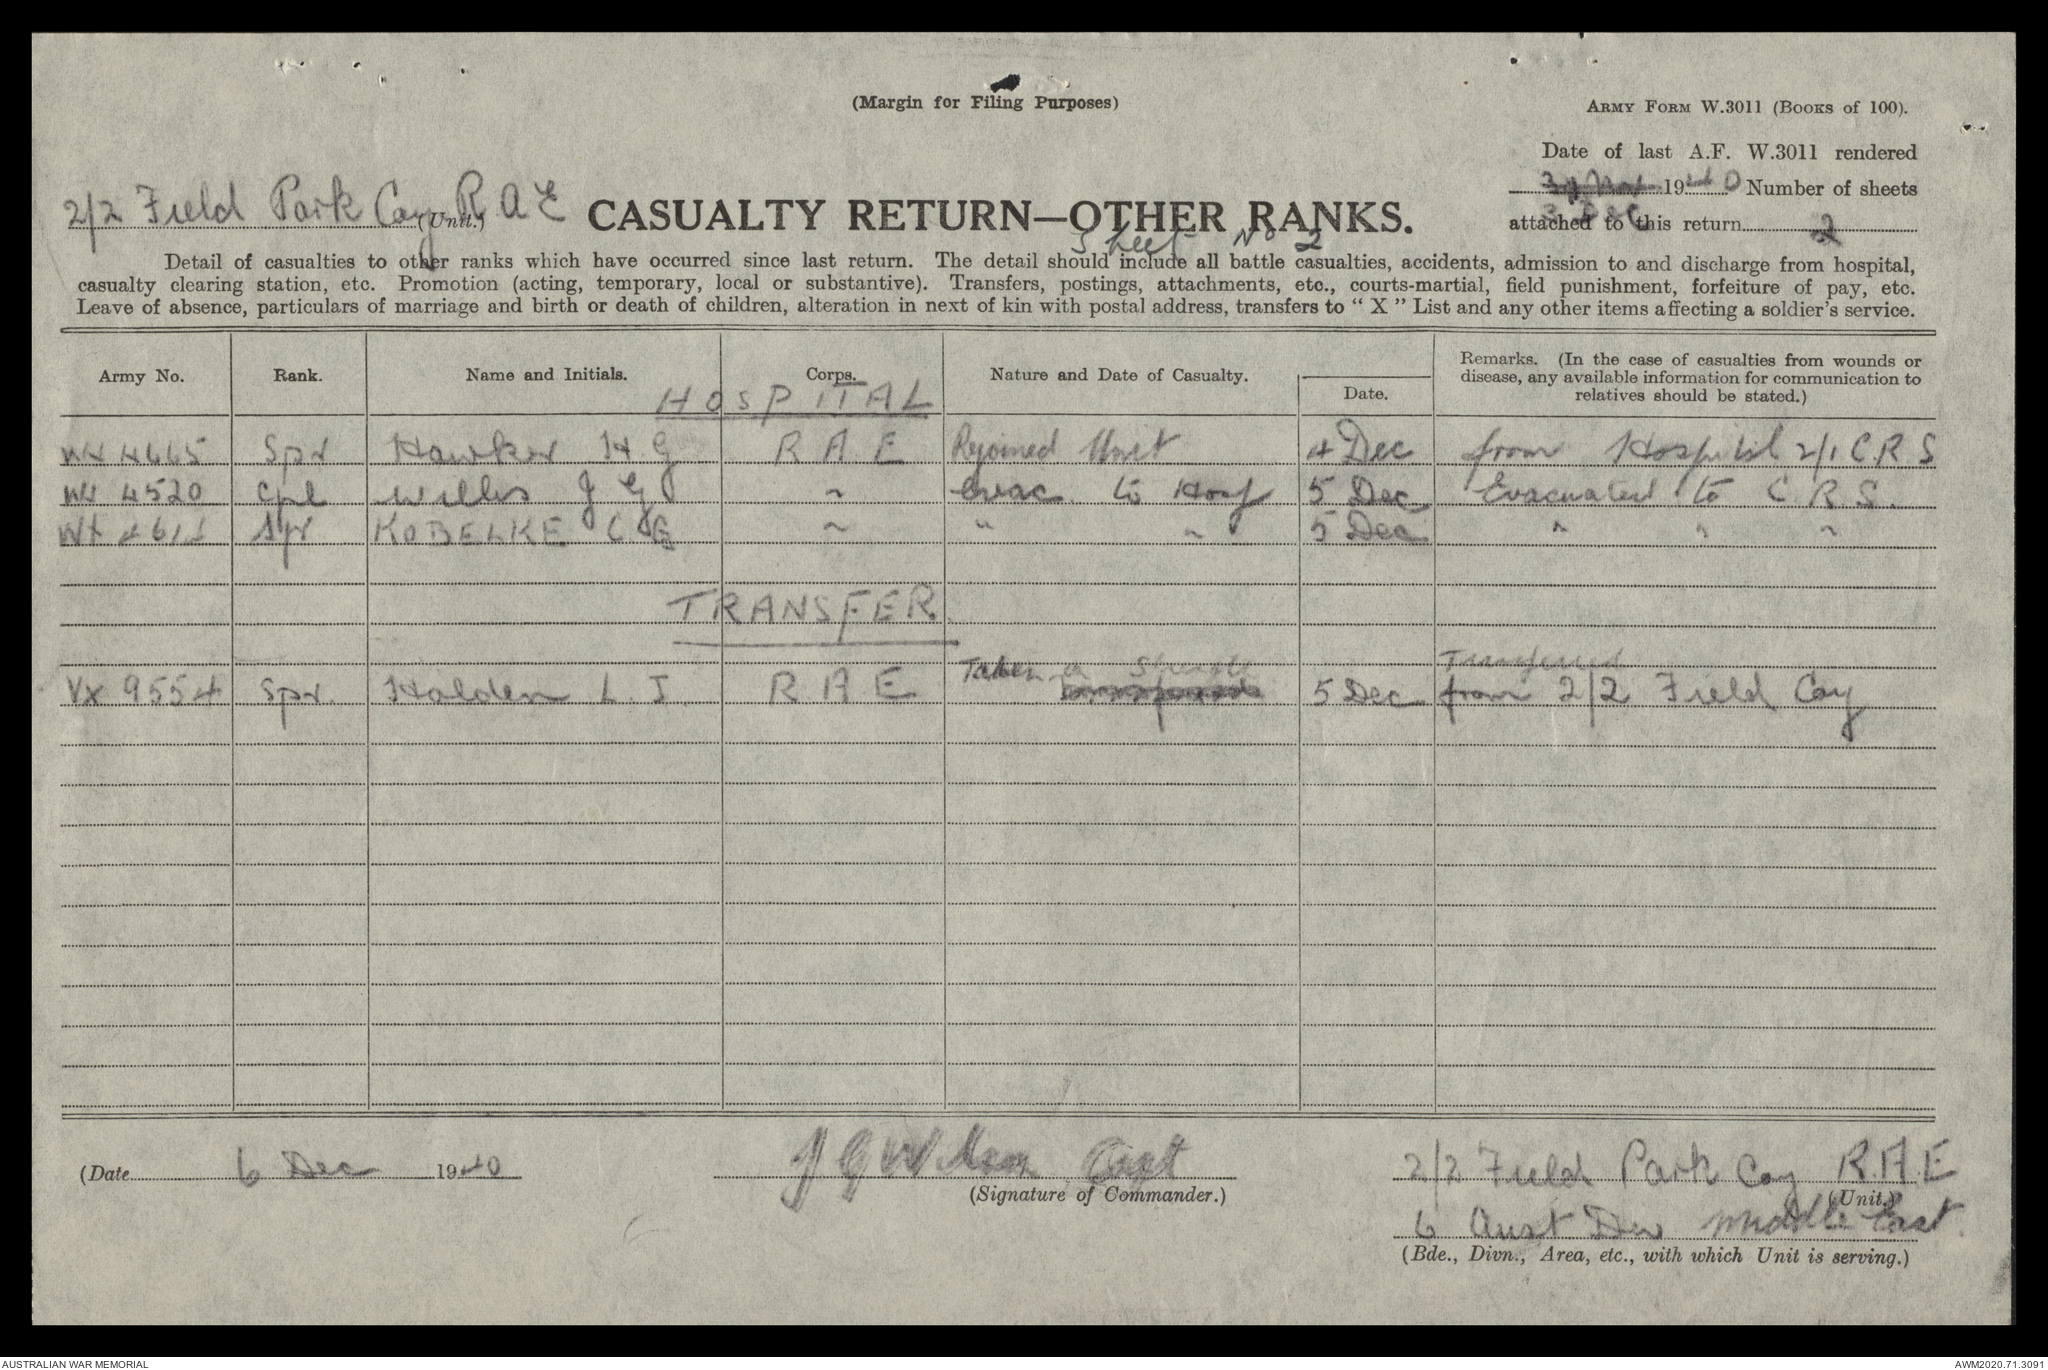 (Margin for Filing Purposes)
ARMY FORM W.3011 (BOOKS OF 100).
Date of last A.F. W.3011 rendered
1940 Number of sheets
3 Dec
attached to this return 2
2/2 Field Park Coy R A E
(Unit.)
CASUALTY RETURN—OTHER RANKS.
Sheet No 2
Detail of casualties to other ranks which have occurred since last return. The detail should include all battle casualties, accidents, admission to and discharge from hospital,
casualty clearing station, etc. Promotion (acting, temporary, local or substantive). Transfers, postings, attachments, etc., courts-martial, field punishment, forfeiture of pay, etc.
Leave of absence, particulars of marriage and birth or death of children, alteration in next of kin with postal address, transfers to " X " List and any other items affecting a soldier's service.
Army No. Rank. Name and Initials. Corps. Nature and Date of Casualty. Date. Remarks. (In the case of casualties from wounds or
disease, any available information for communication to
relatives should be stated.)
HOSPITAL
WX 4665 Spr Hawker H G R A E Rejoined Unit 4 Dec from Hospital 2/1 C.R S
WX 4520 Cpl Willis J G ~ Evac to Hosp 5 Dec Evacuated to C. R S.
Spr KOBELKE C G ~ " ~ 5 Dec " " ~
TRANSFER
Taken o Strength Transferred
VX 9554 Spr. Holden L. J. R A E 5 Dec from 2/2 Field Coy
(Date 6 Dec 1940
J G Wilson Capt
(Signature of Commander.)
2/2 Field Park Coy R.A.E
(Unit.)
6 Aust Div Middle East.
(Bde., Divn., Area, etc., with which Unit is serving.)
AUSTRALIAN WAR MEMORIAL
AWM2020.71.3091